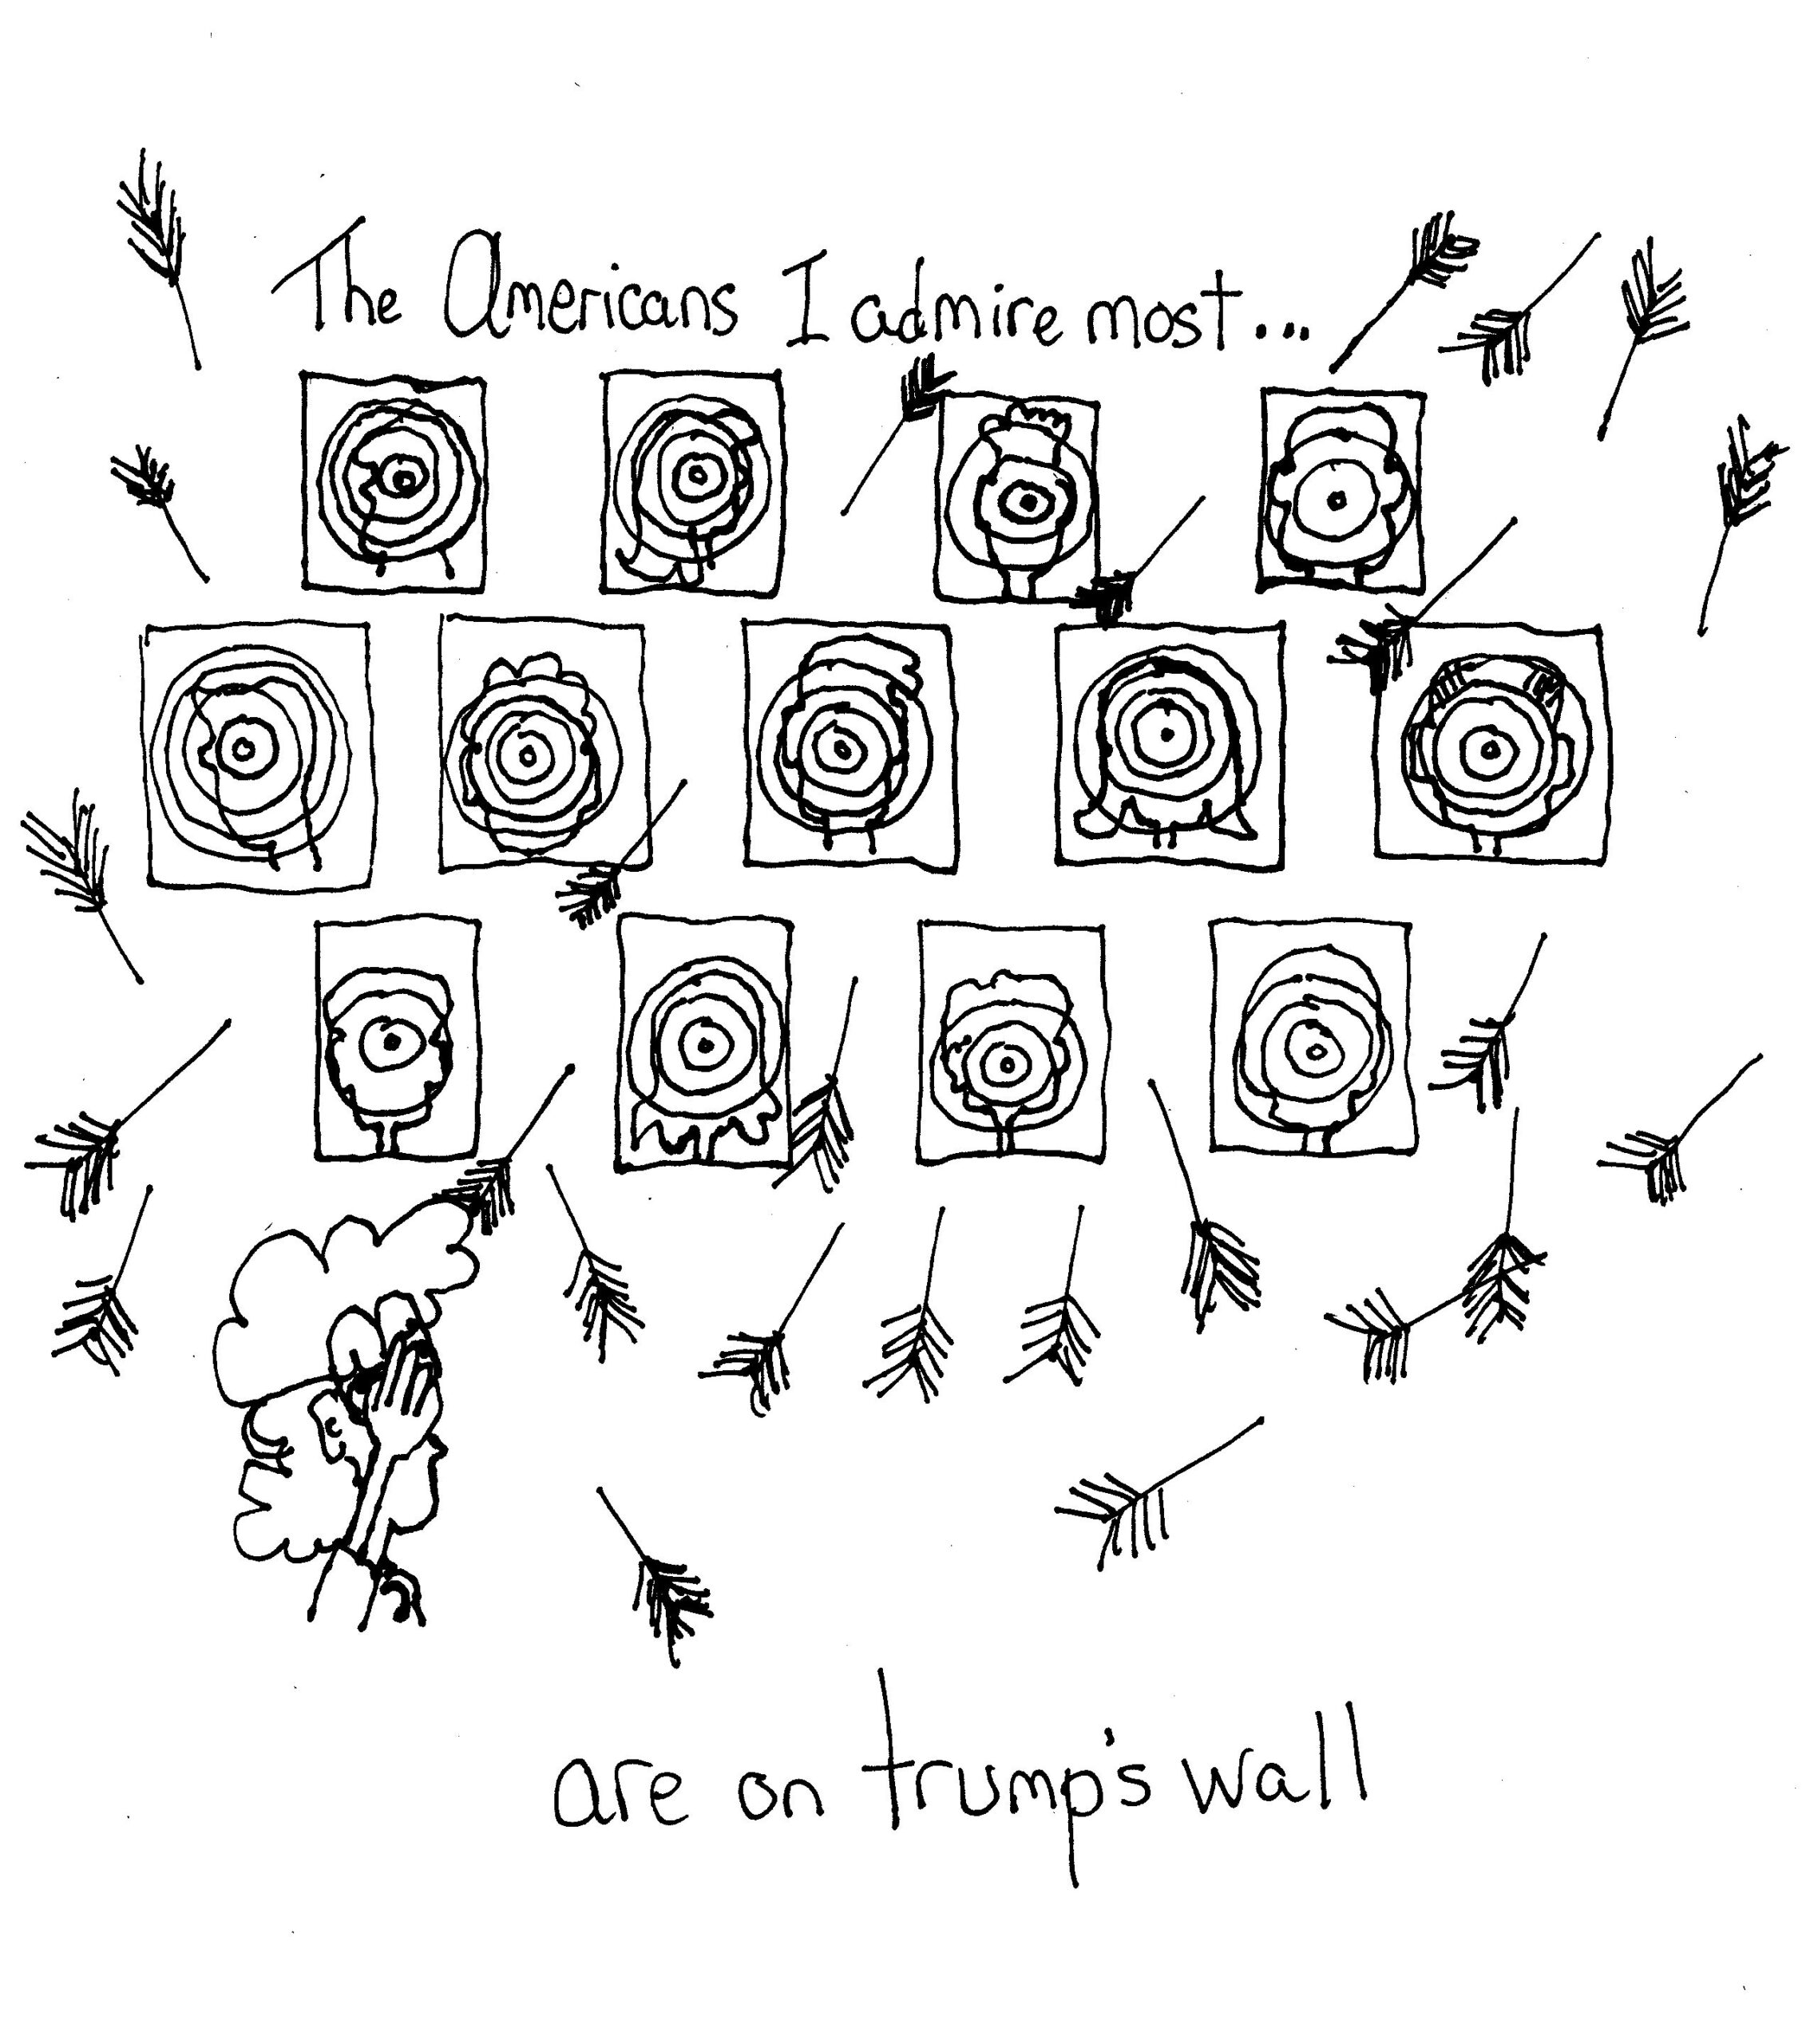 The Americans I admire most...
are on trump's wall